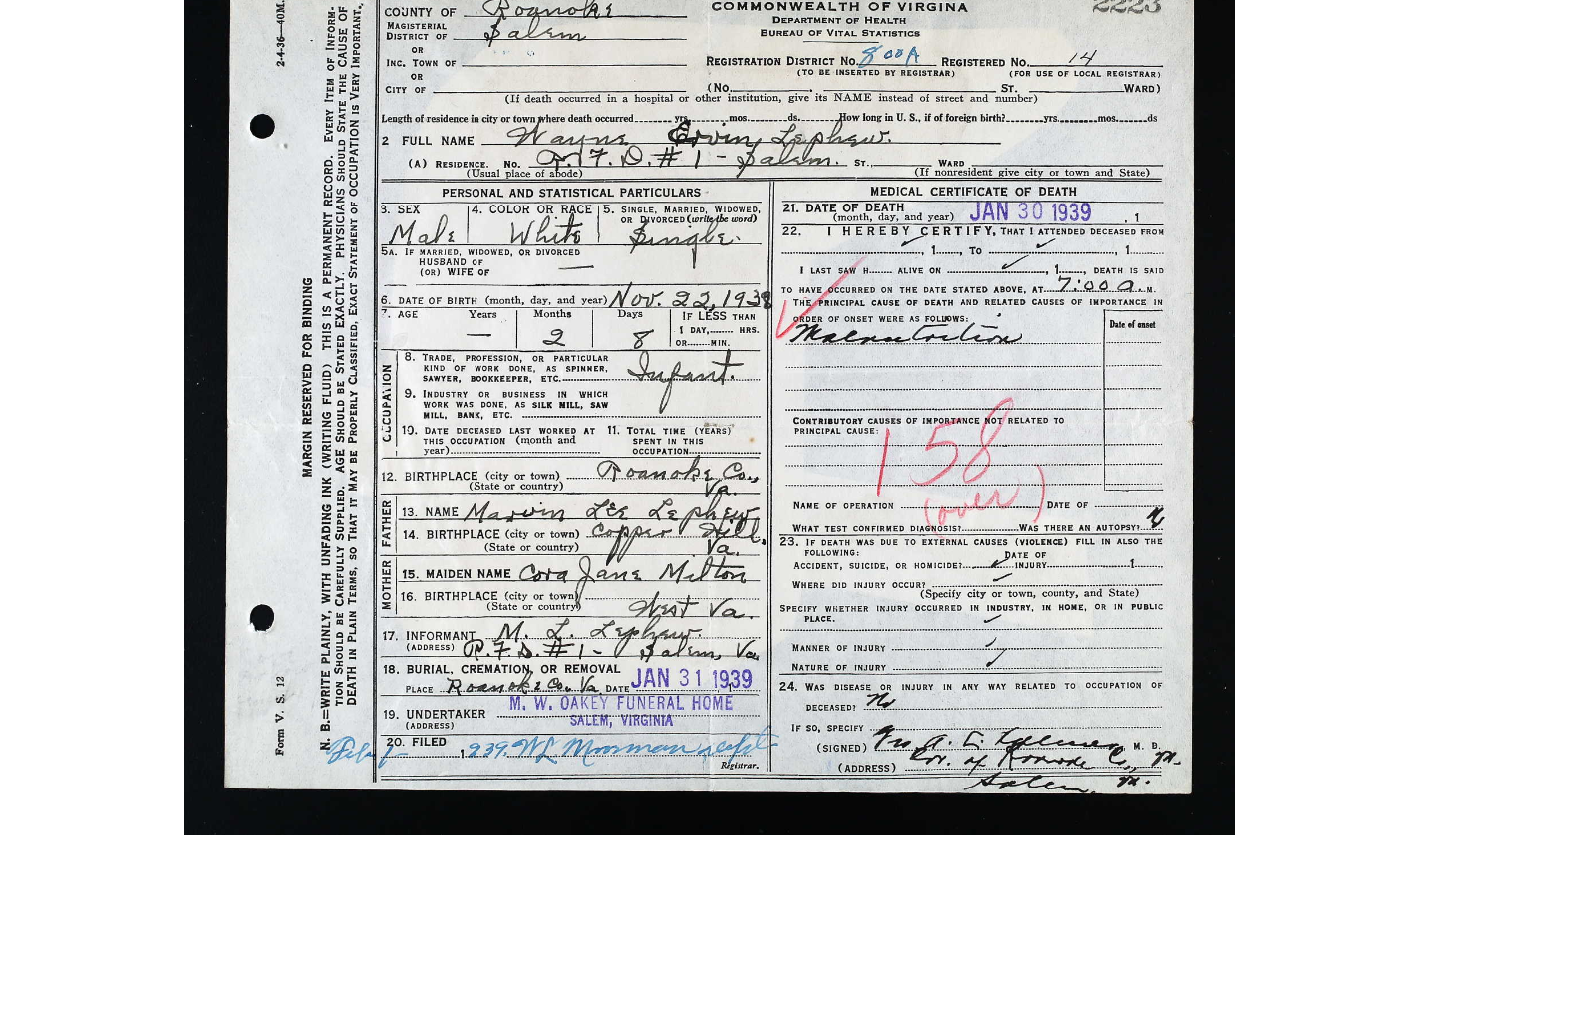 COUNTY OF Roanoke
COMMONWEALTH OF VIRGINIA
2223
MAGISTERIAL
DISTRICT OF Salem
DEPARTMENT OF HEALTH
BUREAU OF VITAL STATISTICS
OR
INC. TOWN OF
REGISTRATION DISTRICT No. 800A REGISTERED No. 14
(TO BE INSERTED BY REGISTRAR) (FOR USE OF LOCAL REGISTRAR)
OR
CITY OF (No. ST. WARD)
(If death occurred in a hospital or other institution, give its NAME instead of street and number)
Length of residence in city or town where death occurred yrs. mos. ds. How long in U. S., if of foreign birth? yrs. mos. ds
2 FULL NAME Wayne Ervin Lephew.
(A) RESIDENCE. No. R. F. D. # 1 - Salem. ST., WARD
(Usual place of abode) (If nonresident give city or town and State)
PERSONAL AND STATISTICAL PARTICULARS
3. SEX 4. COLOR OR RACE 5. SINGLE, MARRIED, WIDOWED,
OR DIVORCED (write the word)
Male White Single.
5A. IF MARRIED, WIDOWED, OR DIVORCED
HUSBAND OF
(OR) WIFE OF
6. DATE OF BIRTH (month, day, and year) Nov. 22, 1938
7. AGE Years Months Days IF LESS THAN
1 DAY, HRS.
OR MIN.
— 2 8
OCCUPATION
8. TRADE, PROFESSION, OR PARTICULAR
KIND OF WORK DONE, AS SPINNER,
SAWYER, BOOKKEEPER, ETC. Infant.
9. INDUSTRY OR BUSINESS IN WHICH
WORK WAS DONE, AS SILK MILL, SAW
MILL, BANK, ETC.
10. DATE DECEASED LAST WORKED AT
THIS OCCUPATION (month and
year)
11. TOTAL TIME (YEARS)
SPENT IN THIS
OCCUPATION
12. BIRTHPLACE (city or town) Roanoke Co.,
(State or country) Va.
FATHER
13. NAME Marvin Lee Lephew
14. BIRTHPLACE (city or town) Copper Hill.
(State or country) Va.
MOTHER
15. MAIDEN NAME Cora Jane Milton
16. BIRTHPLACE (city or town)
(State or country) West Va.
17. INFORMANT M. L. Lephew.
(ADDRESS) R. F. D. # 1 - Salem, Va
18. BURIAL, CREMATION, OR REMOVAL
PLACE Roanoke Co. Va DATE JAN 31 1939
19. UNDERTAKER M. W. OAKEY FUNERAL HOME
(ADDRESS) SALEM, VIRGINIA
20. FILED Feb 1, 1939. W L Mormon
Registrar.
MEDICAL CERTIFICATE OF DEATH
21. DATE OF DEATH
(month, day, and year) JAN 30 1939 , 1
22. I HEREBY CERTIFY, THAT I ATTENDED DECEASED FROM
, 1 , TO , 1
I LAST SAW H ALIVE ON , 1 , DEATH IS SAID
TO HAVE OCCURRED ON THE DATE STATED ABOVE, AT 7:00 a. M.
THE PRINCIPAL CAUSE OF DEATH AND RELATED CAUSES OF IMPORTANCE IN
ORDER OF ONSET WERE AS FOLLOWS:
Date of onset
Malnutrition
CONTRIBUTORY CAUSES OF IMPORTANCE NOT RELATED TO
PRINCIPAL CAUSE:
158
(over)
NAME OF OPERATION DATE OF
WHAT TEST CONFIRMED DIAGNOSIS? WAS THERE AN AUTOPSY?
23. IF DEATH WAS DUE TO EXTERNAL CAUSES (VIOLENCE) FILL IN ALSO THE
FOLLOWING:
ACCIDENT, SUICIDE, OR HOMICIDE? DATE OF INJURY 1
WHERE DID INJURY OCCUR?
(Specify city or town, county, and State)
SPECIFY WHETHER INJURY OCCURRED IN INDUSTRY, IN HOME, OR IN PUBLIC
PLACE.
MANNER OF INJURY
NATURE OF INJURY
24. WAS DISEASE OR INJURY IN ANY WAY RELATED TO OCCUPATION OF
DECEASED? No
IF SO, SPECIFY
(SIGNED) M. D.
(ADDRESS) Cor. of Roanoke Co., Va.
Salem, Va.
MARGIN RESERVED FOR BINDING
N. B.—WRITE PLAINLY, WITH UNFADING INK (WRITING FLUID) THIS IS A PERMANENT RECORD. EVERY ITEM OF INFORM-
TION SHOULD BE CAREFULLY SUPPLIED. AGE SHOULD BE STATED EXACTLY. PHYSICIANS SHOULD STATE THE CAUSE OF
DEATH IN PLAIN TERMS, SO THAT IT MAY BE PROPERLY CLASSIFIED. EXACT STATEMENT OF OCCUPATION IS VERY IMPORTANT.
Form V. S. 12
2-4-36—40M.